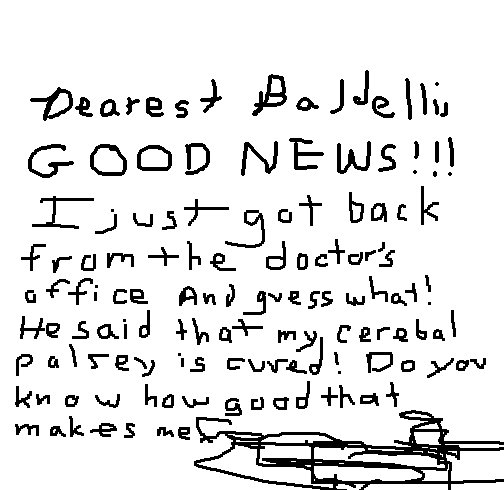 Dearest Baldelli,
GOOD NEWS!!!
I just got back
from the doctor's
office And guess what!
He said that my cerebal
palsey is cured! Do you
know how good that
makes me